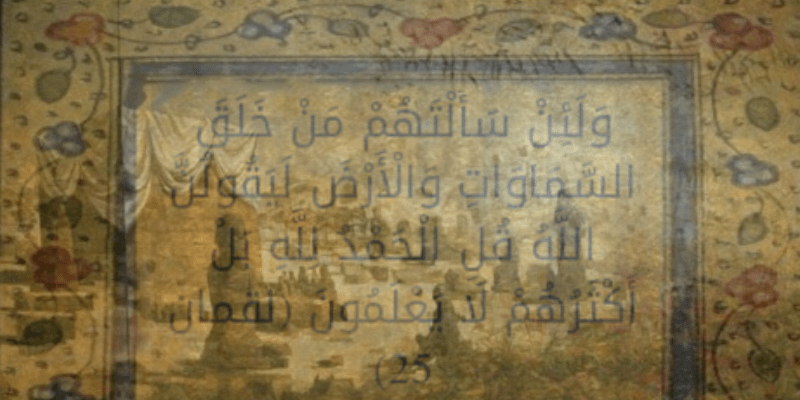 وَلَئِنْ سَأَلْتَهُمْ مَنْ خَلَقَ
السَّمَاوَاتِ وَالْأَرْضَ لَيَقُولُنَّ
اللَّهُ قُلِ الْحَمْدُ لِلَّهِ بَلْ
أَكْثَرُهُمْ لَا يَعْلَمُونَ (لقمان
25)